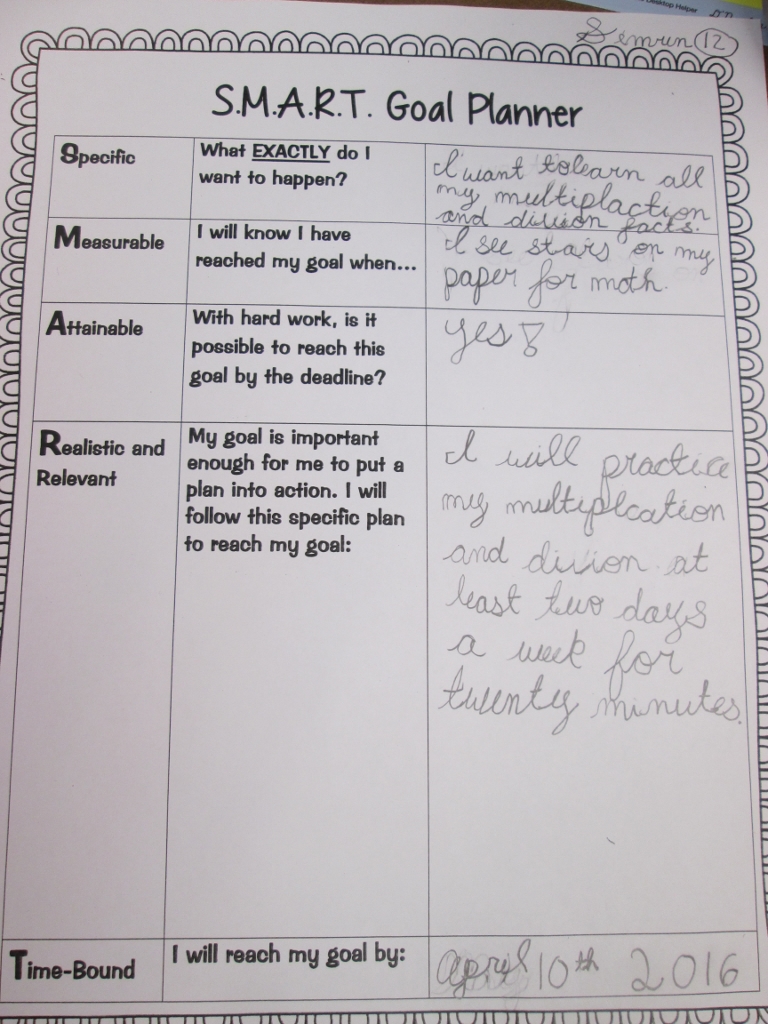 Desktop Helper
Semrun 12
S.M.A.R.T. Goal Planner
Specific
What EXACTLY do I
want to happen?
I want to learn all
my multiplaction
and division facts.
Measurable
I will know I have
reached my goal when...
I see stars on my
paper for math.
Attainable
With hard work, is it
possible to reach this
goal by the deadline?
yes!
Realistic and
Relevant
My goal is important
enough for me to put a
plan into action. I will
follow this specific plan
to reach my goal:
I will practice
my multiplcation
and divion at
least two days
a week for
twenty minutes.
Time-Bound
I will reach my goal by:
April 10th 2016